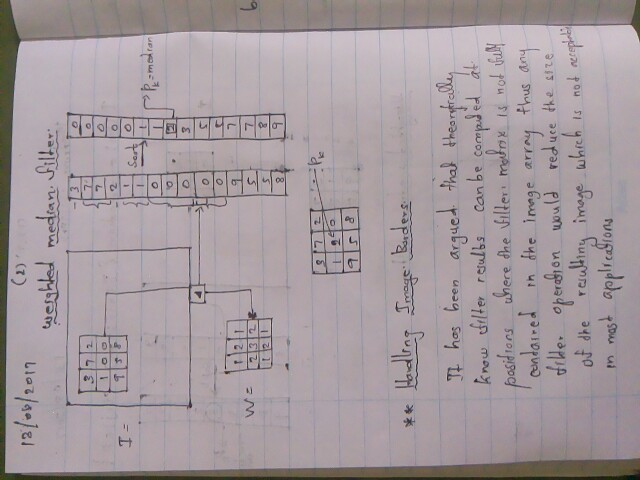 12/08/2017
(2)
weighted median filter
I =
3 7 2
1 0 0
9 5 8
W =
1 2 1
2 3 2
1 2 1
3
7
7
2
1
1
0
0
0
0
0
9
5
5
8
Sort
0
0
0
0
0
1
1
2
3
5
5
7
7
8
9
Pk = median
3 7 2
1 2 0
9 5 8
Pk
** Handling Image Borders
It has been argued that theoretically
know filter results can be computed at
positions where the filter matrix is not fully
contained in the image array thus any
filter operation would reduce the size
of the resulting image which is not acceptable
in most applications